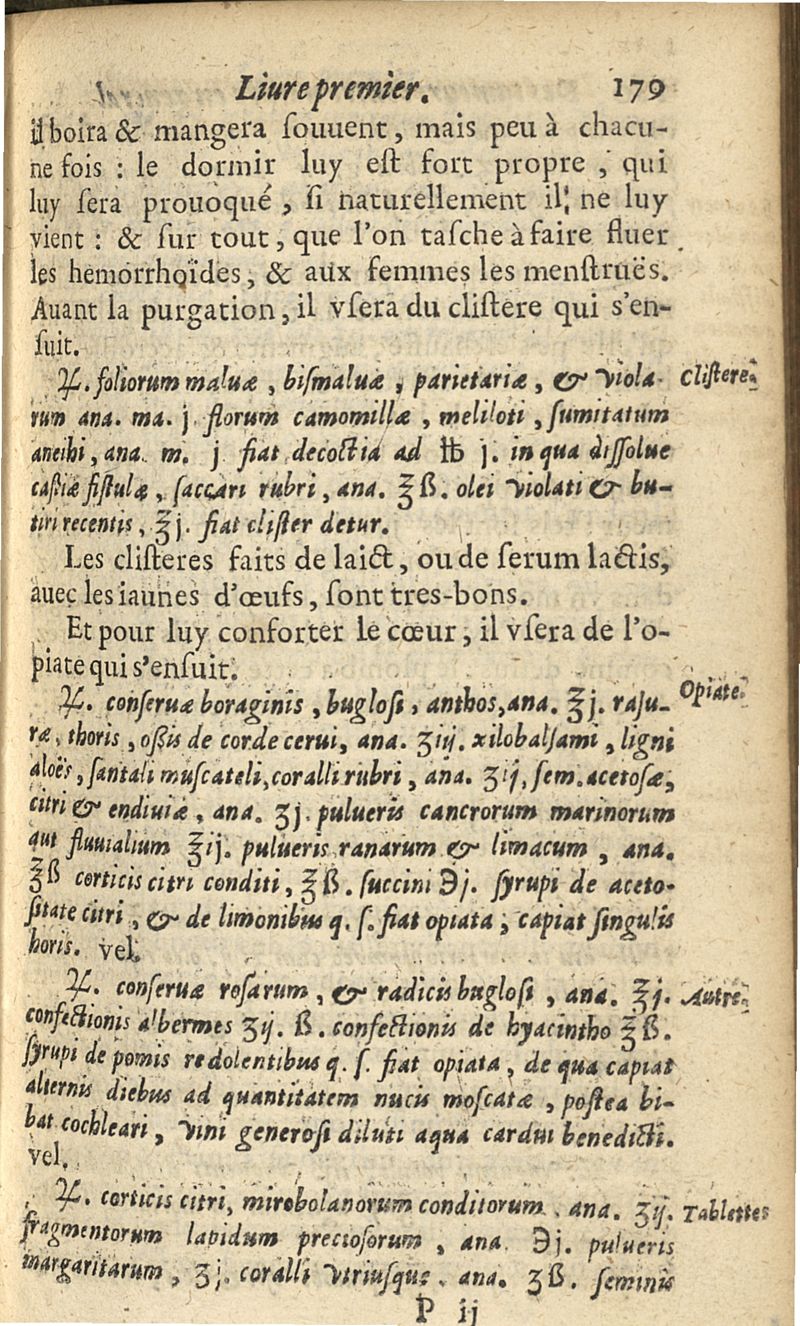 Liure premier. 179
il boira & mangera ſouuent, mais peu à chacu-
ne fois : le dormir luy eſt fort propre, qui
luy ſera prouoqué, ſi naturellement il ne luy
vient : & ſur tout, que l'on taſche à faire fluer
les hemorrhoïdes, & aux femmes les menſtruës.
Auant la purgation, il vſera du cliſtere qui s'en-
ſuit.
℞. foliorum maluæ, biſmaluæ, parietariæ, & viola- Cliſtere.
rum ana. ma. j. florum camomillæ, meliloti, ſumitatum
anethi, ana. m. j fiat decoctia ad ℔ j. in qua diſſolue
caſſiæ fiſtulæ, ſaccari rubri, ana. ℥ ß. olei violati & bu-
tiri recentis, ℥j. fiat cliſter detur.
Les cliſteres faits de laict, ou de ſerum lactis,
auec les iaunes d'œufs, ſont tres-bons.
Et pour luy conforter le cœur, il vſera de l'o-
piate qui s'enſuit.
℞. conſeruæ boraginis, bugloſi, anthos, ana. ℥j. raſu- Opiate.
ræ, thoris, oſſis de corde cerui, ana. ʒiij. xilobalſami, ligni
aloës, ſantali muſcateli, coralli rubri, ana. ʒij, ſem. acetoſæ,
citri & endiuiæ, ana. ʒj. pulueris cancrorum marinorum
aut fluuialium ℥ij. pulueris ranarum & limacum, ana.
℥ß corticis citri conditi, ℥ß. ſuccini ℈j. ſyrupi de aceto-
ſitate citri, & de limonibus q. ſ. fiat opiata, capiat ſingulis
horis. vel.
℞. conſeruæ roſarum, & radicis bugloſi, ana. ℥j. Autre.
confectionis alhermes ʒij. ß. confectionis de hyacintho ℥ß.
ſyrupi de pomis redolentibus q. ſ. fiat opiata, de qua capiat
alternis diebus ad quantitatem nucis moſcatæ, poſtea bi-
bat cochleari, vini generoſi diluti aqua cardui benedicti.
vel.
℞. corticis citri, mirobolanorum conditorum, ana. ʒij. Tablettes
fragmentorum lapidum precioſorum, ana. ℈j. pulueris
margaritarum, ʒj. coralli vtriuſque, ana. ʒß. ſeminis
P ij